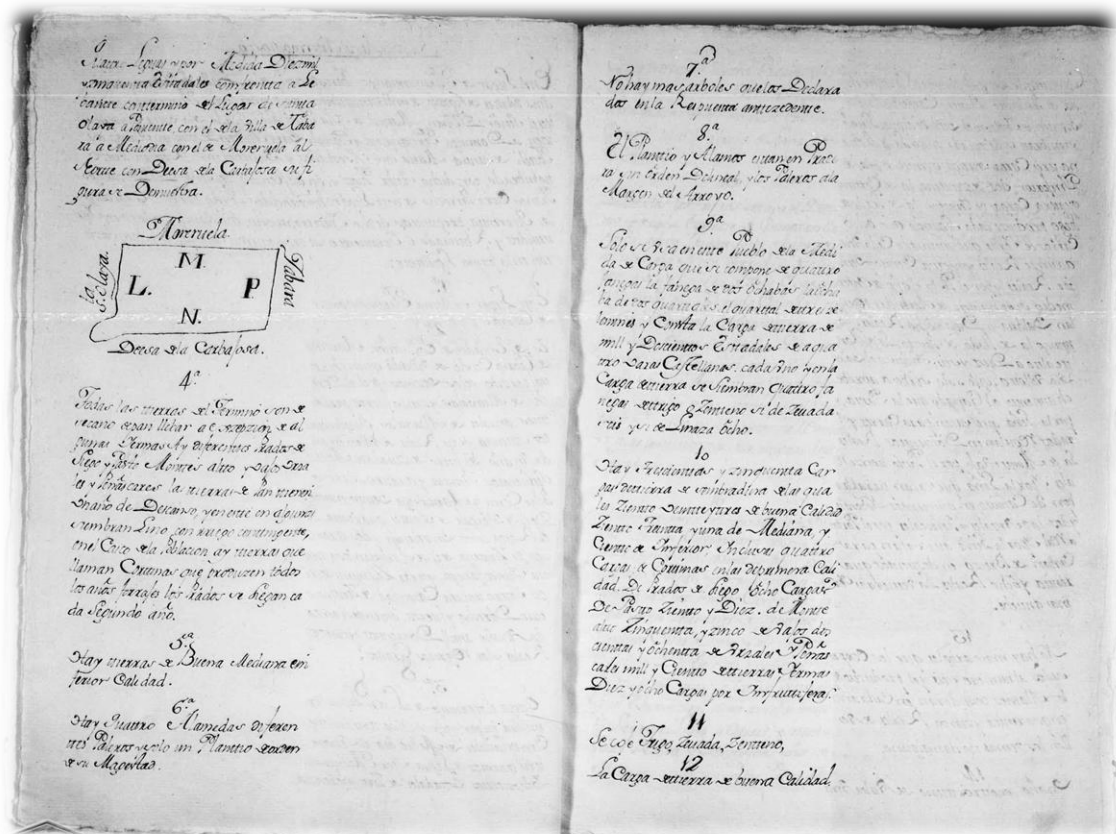 Maior, Leguas y por Medida Diezmil
y nobenta Estadales comfrenta a Le
bante contermino del Lugar de Santa
Olaya a Poniente con el dela Villa de Taba
ra a Mediodia con el de Moreruela al
Norte con Deesa dela Corbajosa su fi
gura se Demuestra.
Moreruela
M.
Sta. Olaya
L.
P
Tabara
N.
Deesa dela Corbajosa.
4.ª
Todas las tierras del Termino son de
secano sean llebar a escepcion de al
gunas Yermas Ay diferentes Prados de
Siego y Pasto Montes alto y vajo Vria
les y Peñascores las tierras de Pan tienen
un año de Descanso, yeneste en algunas
siembran Lino con riego contingente,
en el Casco dela Poblacion ay tierras que
llaman Cortinas que producen todos
los años forrajes los Prados se siegan ca
da Segundo año.
5.ª
Hay tierras de Buena Mediana e in
ferior Calidad.
6.ª
Hay Quattro Alamedas diferen
tes Paleros y solo un Plantio de orden
de su Magestad.
7.ª
No hay mas arboles que los Declara
dos en la Respuesta antezedente.
8.ª
El Plantio y Alamos estan en Prade
ra sin Orden Delental, y los Paleros ala
Margen del Arroyo.
9.ª
Solo se Vsa en este Pueblo dela Medi
da de Carga que se compone de quattro
fanegas la fanega de dos ochabas la ocha
ba de dos quartales el quartal de tres ce
lemines y Consta la Carga de tierra de
mill y Doscientos Estadales de a qua
tro varas Castellanas cada Vno y en la
Carga de tierra se Siembran Quattro fa
negas de trigo o Zenteno si de Zevada
seis y si de Linaza Ocho.
10
Hay Trescientas y zinquenta Car
gas de tierra de sembradura de las qua
les Ziento Veinte y tres de buena Calidad
Ziento Treinta y una de Mediana, y
Ciento de Inferior, Inclusas quattro
Cargas de Cortinas en las de primera Cali
dad. De Prados de Siego Ocho Cargas
De Pasto Ziento y Diez. de Monte
alto Zinquenta, y zinco de Vajos dos
cientas y ochenta de Vriales y Peñas
cales mill y Ciento de tierras Yermas
Diez y ocho Cargas por Infructiferas.
11
Se coje Trigo, Zevada, Zenteno,
12
La Carga de tierra de buena Calidad,